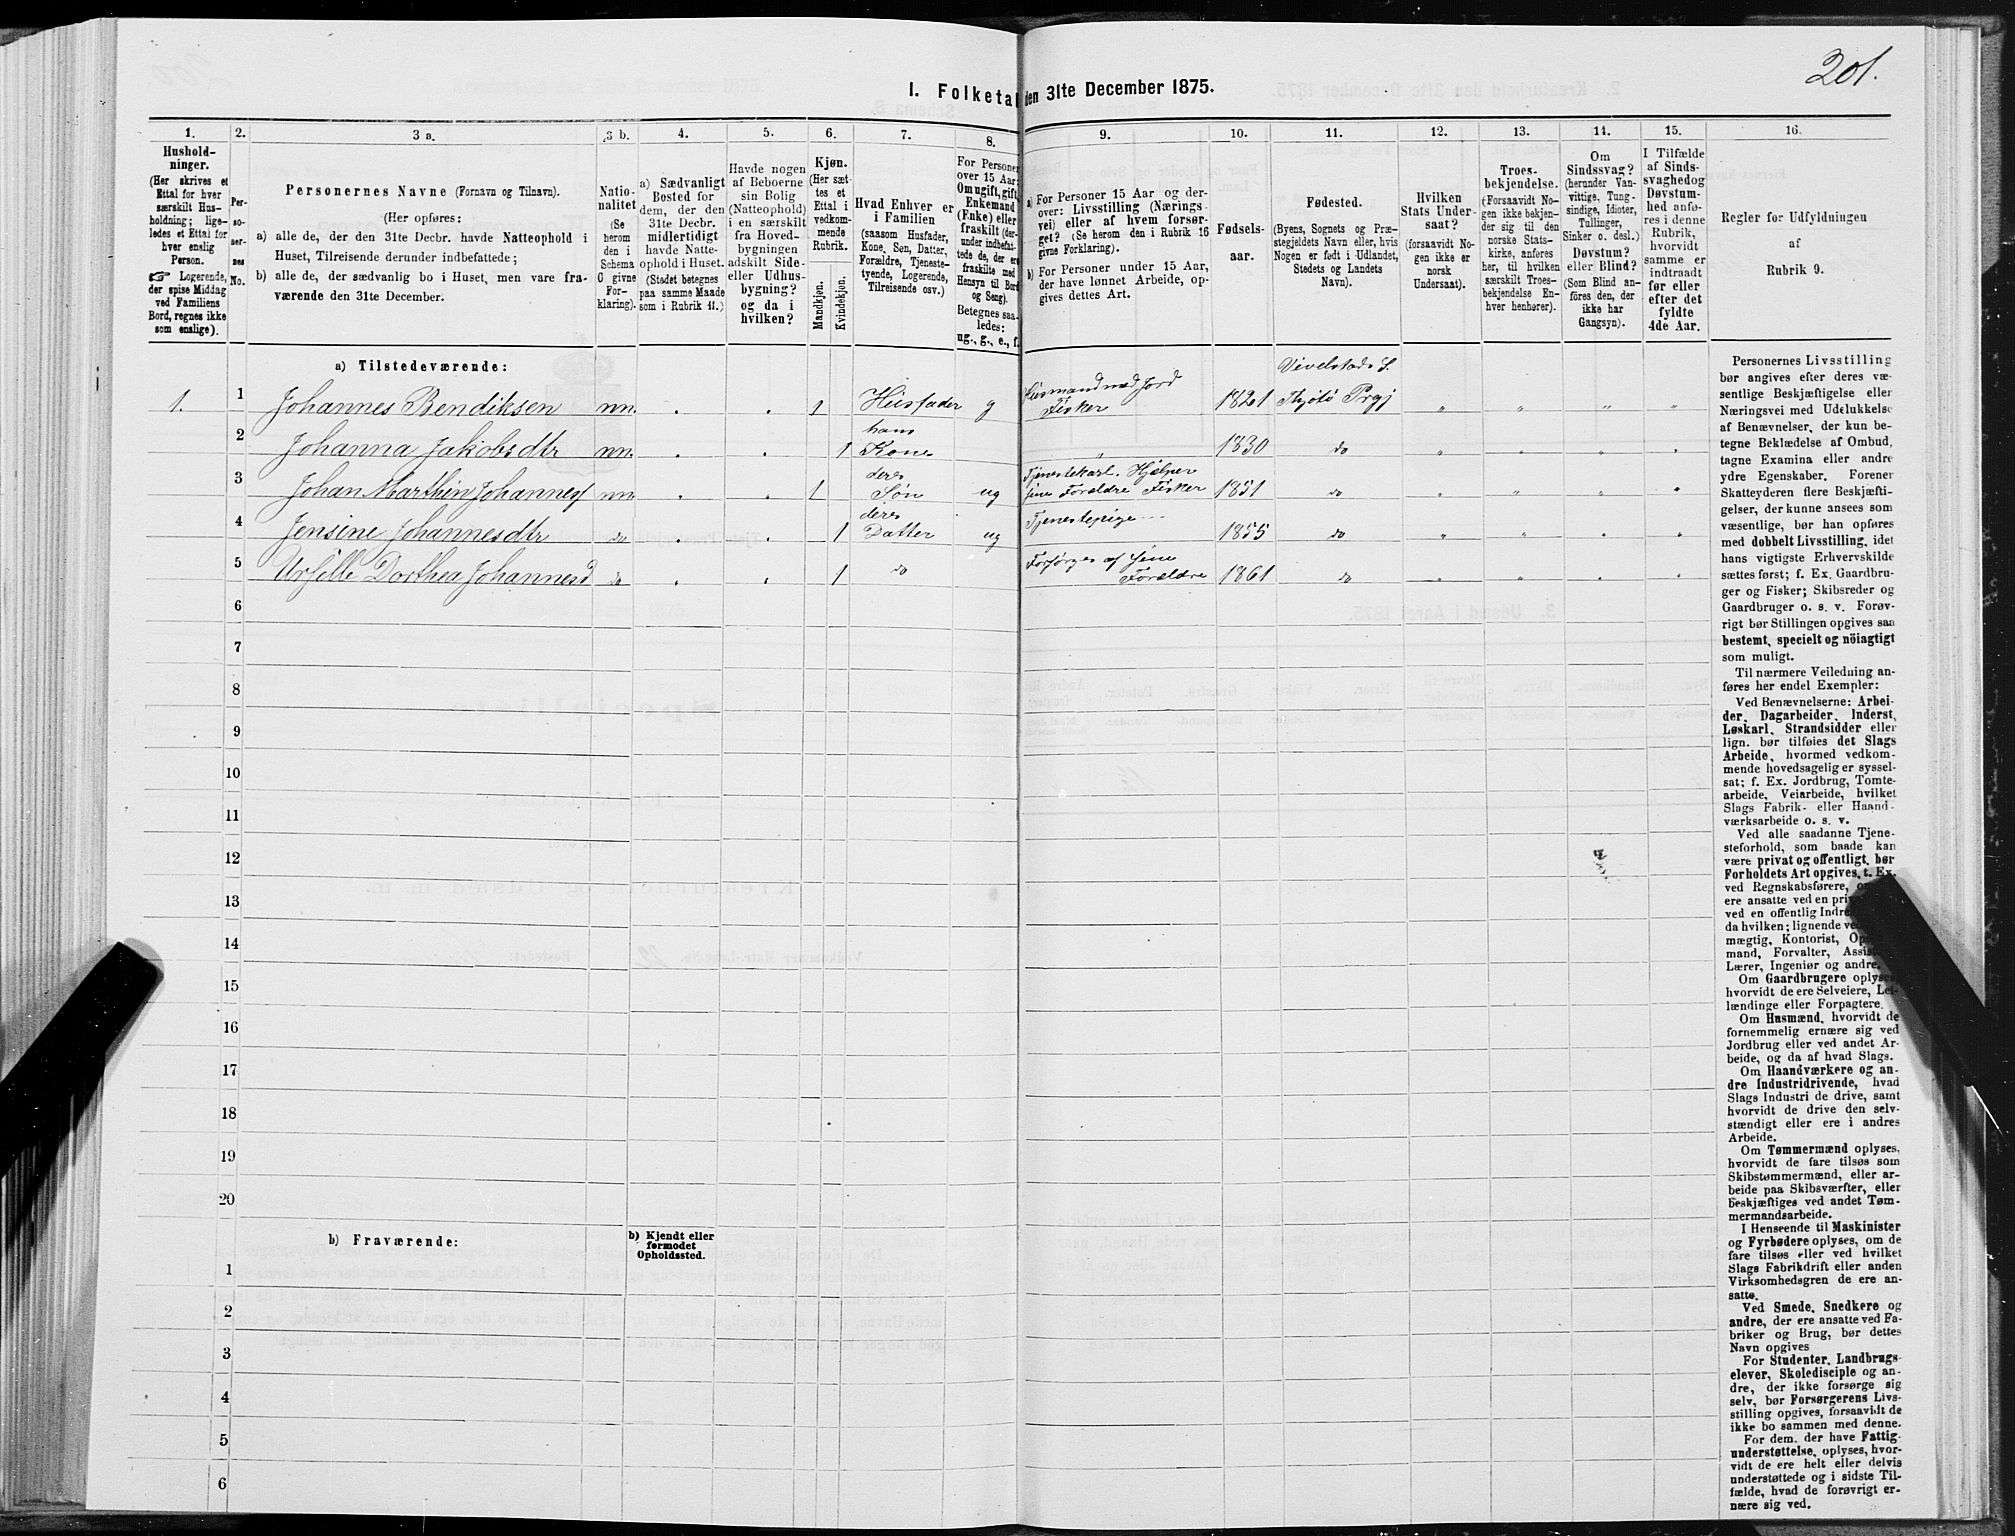 201.
1. Folketal den 31te December 1875.
1. 2. 3 a. 3 b. 4. 5. 6. 7. 8. 9. 10. 11. 12. 13. 14. 15. 16.
Hushold-
ninger.
(Her skrives et
Ettal for hver
særskilt Hus-
holdning; lige-
ledes et Ettal for
hver enslig
Person.
☞ Logerende,
der spise Middag
ved Familiens
Bord, regnes ikke
som enslige).
Per-
so-
ner-
nes
No.
Personernes Navne (Fornavn og Tilnavn).
(Her opføres:
a) alle de, der den 31te Decbr. havde Natteophold i
Huset, Tilreisende derunder indbefattede;
b) alle de, der sædvanlig bo i Huset, men vare fra-
værende den 31te December.
Natio-
nalitet
(Se
herom
den i
Schema
C givne
For-
klaring).
a) Sædvanligt
Bosted for
dem, der den
31te Decbr.
midlertidigt
havde Natte-
ophold i Huset.
(Stedet betegnes
paa samme Maade
som i Rubrik 11.)
Havde nogen
af Beboerne
sin Bolig
(Natteophold)
i en særskilt
fra Hoved-
bygningen
adskilt Side-
eller Udhus-
bygning?
og da i
hvilken?
Kjøn.
(Her sæt-
tes et
Ettal i
vedkom-
mende
Rubrik.
Mandkjøn.
Kvindekjøn.
Hvad Enhver er
i Familien
(saasom Husfader,
Kone, Søn, Datter,
Forældre, Tjeneste-
tyende, Logerende,
Tilreisende osv.)
For Personer
over 15 Aar:
Om ugift, gift,
Enkemand
(Enke) eller
fraskilt (der-
under indbefat-
tede de, der ere
fraskilte med
Hensyn til Bord
og Seng).
Betegnes saa-
ledes:
ug., g., e., f.
a) For Personer 15 Aar og der-
over: Livsstilling (Nærings-
vei) eller af hvem forsør-
get? (Se herom den i Rubrik 16
givne Forklaring).
b) For Personer under 15 Aar,
der have lønnet Arbeide, op-
gives dettes Art.
Fødsels-
aar.
Fødested.
(Byens, Sognets og Præ-
stegjeldets Navn eller, hvis
Nogen er født i Udlandet,
Stedets og Landets
Navn).
Hvilken
Stats Under-
saat?
(forsaavidt No-
gen ikke er
norsk
Undersaat).
Troes-
bekjendelse.
(Forsaavidt No-
gen ikke bekjen-
der sig til den
norske Stats-
kirke, anføres
her, til hvilken
særskilt Troes-
bekjendelse En-
hver henhører).
Om
Sindssvag?
(herunder Van-
vittige, Tung-
sindige, Idioter,
Tullinger,
Sinker o. desl.)
Døvstum?
eller Blind?
(Som Blind an-
føres den, der
ikke har
Gangsyn).
I Tilfælde
af Sinds-
svaghed og
Døvstum-
hed anfø-
res i denne
Rubrik,
hvorvidt
samme er
indtraadt
før eller
efter det
fyldte
4de Aar.
Regler for Udfyldningen
af
Rubrik 9.
a) Tilstedeværende:
1. 1 Johannes Bendiksen nn. 1 Husfader g Husmand med Jord Fisker 1821 Vivelstads S. Thjøtø Prgj
2 Johanna Jakobsdtr nn. 1 hans Kone 1830 do
3 Johan Marthin Johannes nn. 1 deres Søn ug Tjenestekarl. Hjelper sine Forældre Fisker 1851 do
4 Jensine Johannesdtr do 1 deres Datter ug Tjenestepige 1855 do
5 Dorthea Johannesd do 1 do Forsørges af sine Forældre 1861 do
6
7
8
9
10
11
12
13
14
15
16
17
18
19
20
b) Fraværende:
b) Kjendt eller
formodet
Opholdssted.
1
2
3
4
5
6
Personernes Livsstilling
bør angives efter deres væ-
sentlige Beskjæftigelse eller
Næringsvei med Udelukkelse
af Benævnelser, der kun be-
tegne Beklædelse af Ombud,
tagne Examina eller andre
ydre Egenskaber. Forener
Skatteyderen flere Beskjæfti-
gelser, der kunne ansees som
væsentlige, bør han opføres
med dobbelt Livsstilling, idet
hans vigtigste Erhvervskilde
sættes først; f. Ex. Gaardbru-
ger og Fisker; Skibsreder og
Gaardbruger o. s. v. Forøv-
rigt bør Stillingen opgives saa
bestemt, specielt og nöiagtigt
som muligt.
Til nærmere Veiledning an-
føres her endel Exempler:
Ved Benævnelserne: Arbei-
der, Dagarbeider, Inderst,
Løskarl, Strandsidder eller
lign. bør tilføies det Slags
Arbeide, hvormed vedkom-
mende hovedsagelig er syssel-
sat; f. Ex. Jordbrug, Tomte-
arbeide, Veiarbeide, hvilket
Slags Fabrik- eller Haand-
værksarbeide o. s. v.
Ved alle saadanne Tjene-
steforhold, som baade kan
være privat og offentligt, bør
Forholdets Art opgives, t. Ex.
ved Regnskabsførere,
ere ansatte ved en
ved en offentlig
da hvilken; lignende
mægtig, Kontorist,
mand, Forvalter,
Lærer, Ingeniør og andre.
Om Gaardbrugere oplyses
hvorvidt de ere Selveiere, Lei-
lændinge eller Forpagtere.
Om Husmænd, hvorvidt de
fornemmelig ernære sig ved
Jordbrug eller ved andet Ar-
beide, og da af hvad Slags.
Om Haandværkere og an-
dre Industridrivende, hvad
Slags Industri de drive, samt
hvorvidt de drive den selv-
stændigt eller ere i andres
Arbeide.
Om Tømmermænd oplyses,
hvorvidt de fare tilsøs som
Skibstømmermænd, eller ar-
beide paa Skibsværfter, eller
beskjæftiges ved andet Tøm-
mermandsarbeide.
I Henseende til Maskinister
og Fyrbødere oplyses, om de
fare tilsøs eller ved hvilket
Slags Fabrikdrift eller anden
Virksomhedsgren de ere an-
satte.
Ved Smede, Snedkere og
andre, der ere ansatte ved Fa-
briker og Brug, bør dettes
Navn opgives
For Studenter, Landbrugs-
elever, Skoledisciple og an-
dre, der ikke forsørge sig
selv, bør Forsørgerens Livs-
stilling opgives, forsaavidt de
ikke bo sammen med denne.
For dem, der have Fattig-
understøttelse, oplyses, hvor-
vidt de ere helt eller delvis
understøttede og i sidste Til-
fælde, hvad de forøvrigt er-
nære sig ved.